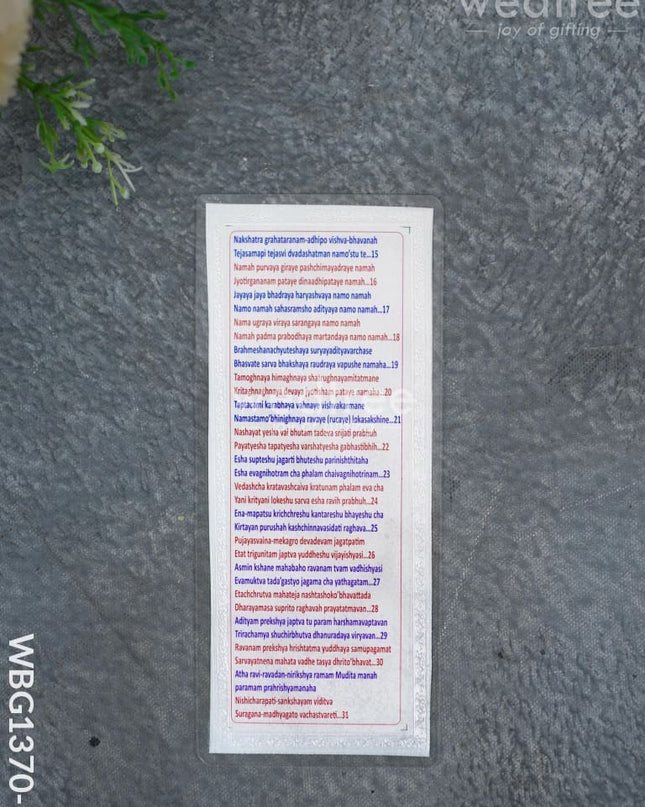 wedtree
joy of gifting
Nakshatra grahataranam-adhipo vishva-bhavanah
Tejasamapi tejasvi dvadashatman namo'stu te...15
Namah purvaya giraye pashchimayadraye namah
Jyotirgananam pataye dinaadhipataye namah...16
Jayaya jaya bhadraya haryashvaya namo namah
Namo namah sahasramsho adityaya namo namah...17
Nama ugraya viraya sarangaya namo namah
Namah padma prabodhaya martandaya namo namah...18
Brahmeshanachyuteshaya suryayadityavarchase
Bhasvate sarva bhakshaya raudraya vapushe namaha...19
Tamoghnaya himaghnaya shatrughnayamitatmane
Kritaghnaghnaya devaya jyotisham pataye namaha...20
Taptacami karabhaya vahnaye vishvakarmane
Namastamo'bhinighnaya ravaye (rucaye) lokasakshine...21
Nashayat yesha vai bhutam tadeva srijati prabhuh
Payatyesha tapatyesha varshatyesha gabhastibhih...22
Esha supteshu jagarti bhuteshu parinishthitaha
Esha evagnihotram cha phalam chaivagnihotrinam...23
Vedashcha kratavashcaiva kratunam phalam eva cha
Yani krityani lokeshu sarva esha ravih prabhuh...24
Ena-mapatsu krichchreshu kantareshu bhayeshu cha
Kirtayan purushah kashchinnavasidati raghava...25
Pujayasvaina-mekagro devadevam jagatpatim
Etat trigunitam japtva yuddheshu vijayishyasi...26
Asmin kshane mahabaho ravanam tvam vadhishyasi
Evamuktva tada'gastyo jagama cha yathagatam...27
Etachchrutva mahateja nashtashoko'bhavattada
Dharayamasa suprito raghavah prayatatmavan...28
Adityam prekshya japtva tu param harshamavaptavan
Trirachamya shuchirbhutva dhanuradaya viryavan...29
Ravanam prekshya hrishtatma yuddhaya samupagamat
Sarvayatnena mahata vadhe tasya dhrito'bhavat...30
Atha ravi-ravadan-nirikshya ramam Mudita manah
paramam prahrishyamanaha
Nishicharapati-sankshayam viditva
Suragana-madhyagato vachastvareti...31
WBG1370-